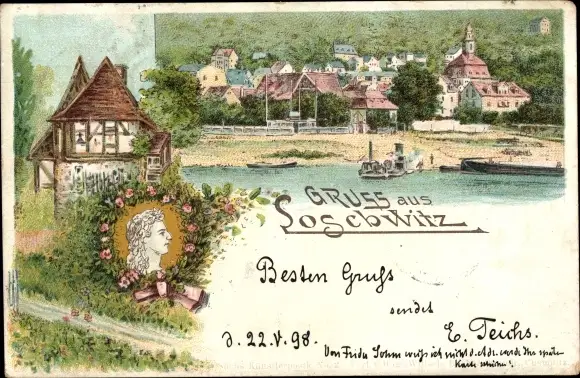 GRUSS aus
Loschwitz
Besten Gruß
sendet
d. 22.V.98. E. Teichs.
Von Frida Sohm weiß ich nicht d. Adr. werde Ihr später
Karte